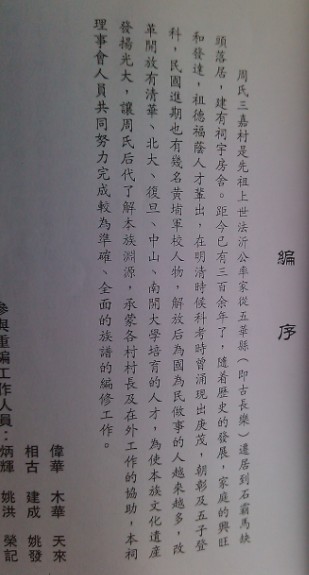 編序
周氏三嘉村是先祖上世法沂公率家從五華縣（即古長樂）遷居到石霸馬缺
頭落居，建有祠宇房舍。距今已有三百余年了，隨着歷史的發展，家庭的興旺
和發達，祖德福蔭人才輩出，在明清時候科考時曾涌現出庚茂，朝彰及五子登
科，民國進期也有幾名黃埔軍校人物，解放后為國為民做事的人越來越多，改
革開放有清華、北大、復旦、中山、南開大學培育的人才，為使本族文化遺産
發揚光大，讓周氏后代了解本族淵源，承蒙各村村長及在外工作的協助，本祠
理事會人員共同努力完成較為準確、全面的族譜的編修工作。
參與重編工作人員：
偉華 木華 天來
相古 建成 姚發
炳輝 姚洪 榮記